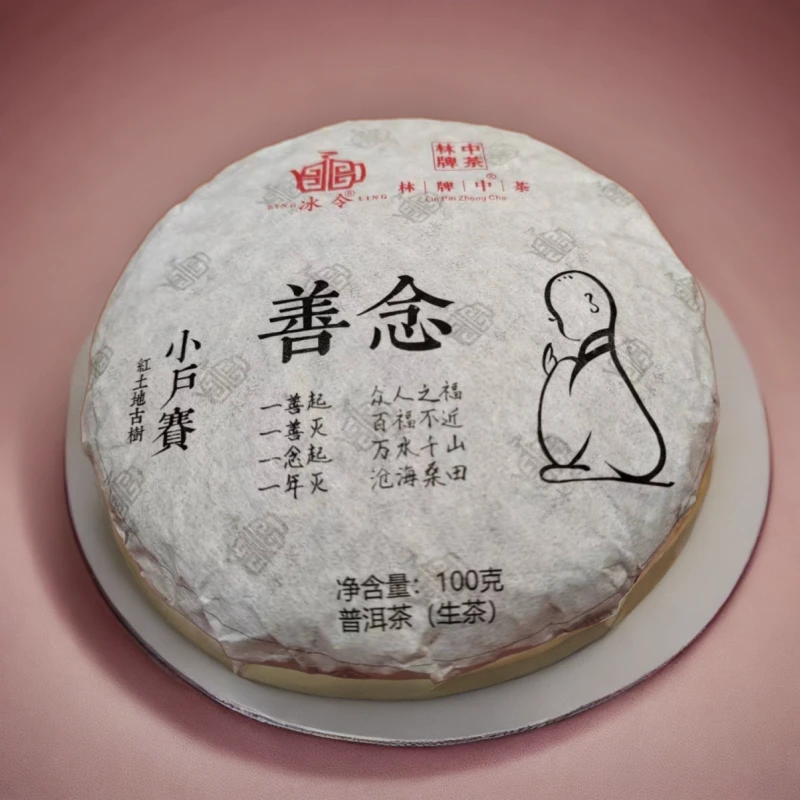 林中
牌茶
BING 冰令® LING
林|牌|中®|茶
Lin Pai Zhong Cha
善念
小戶賽
紅土地古樹
一善起 众人之福
一善灭 百福不近
一念起 万水千山
一年灭 沧海桑田
净含量：100克
普洱茶（生茶）